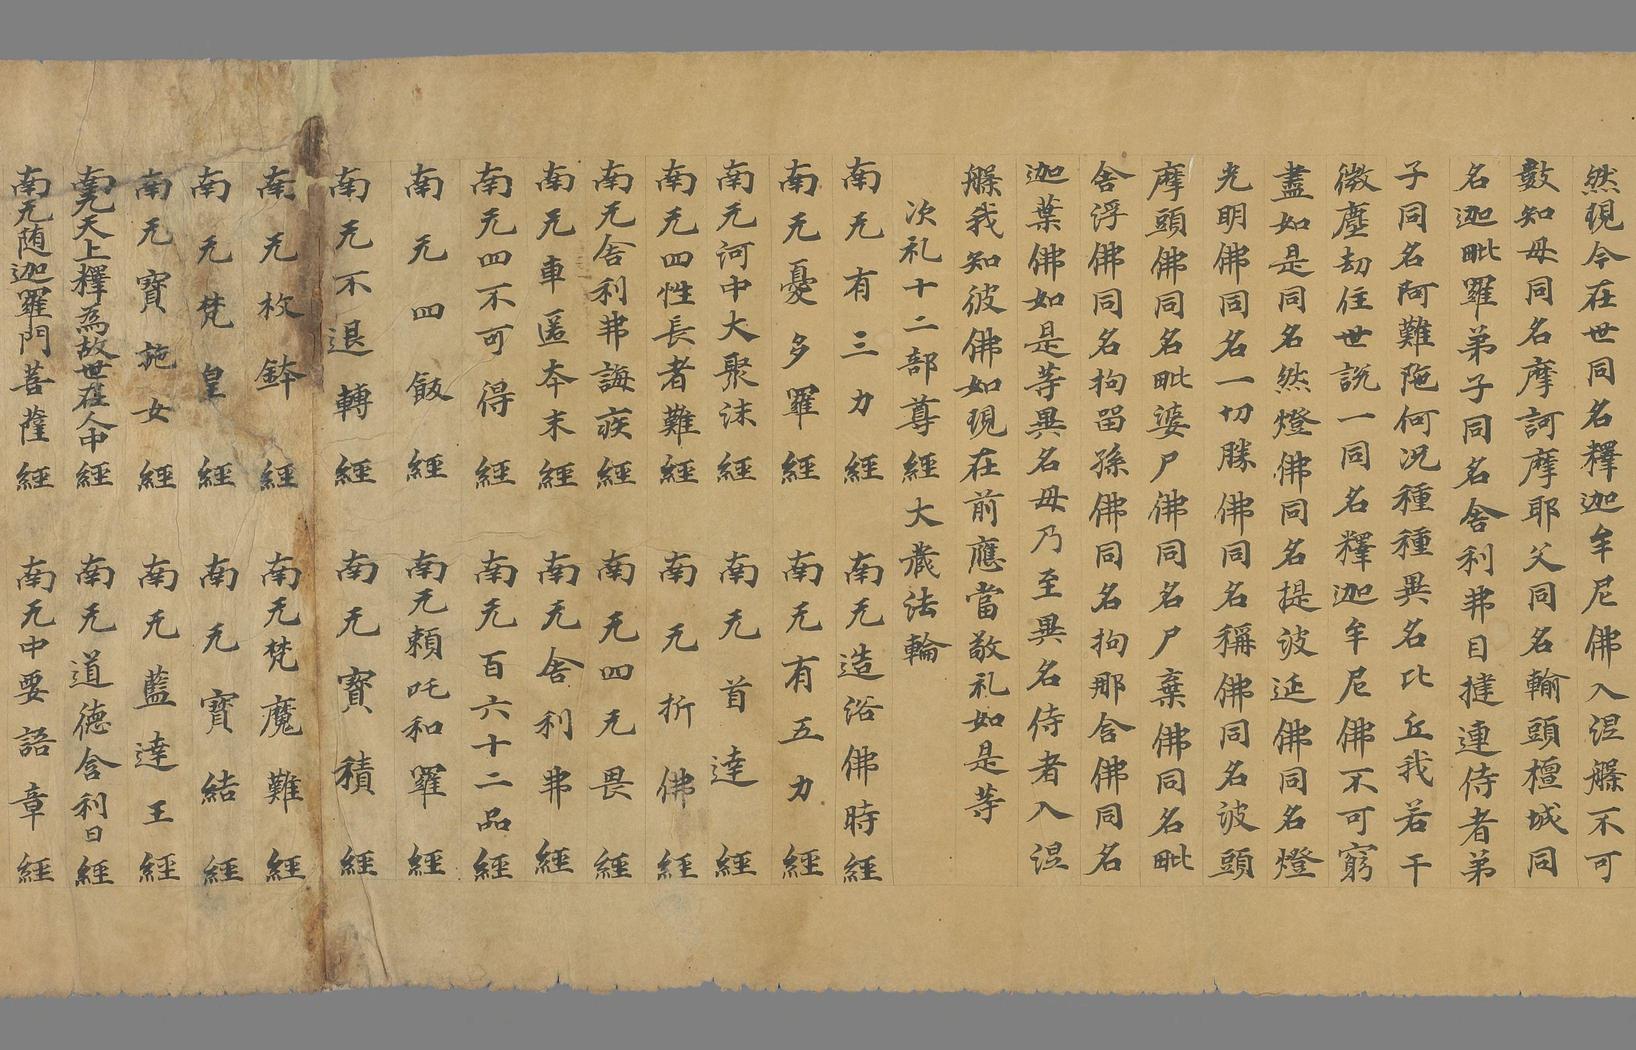 然現今在世同名釋迦牟尼佛入涅槃不可
數知母同名摩訶摩耶父同名輸頭檀城同
名迦毗羅弟子同名舍利弗目揵連侍者弟
子同名阿難陁何況種種異名比丘我若干
微塵劫住世說一同名釋迦牟尼佛不可窮
盡如是同名然燈佛同名提波延佛同名燈
光明佛同名一切勝佛同名稱佛同名波頭
摩頭佛同名毗婆尸佛同名尸棄佛同名毗
舍浮佛同名拘留孫佛同名拘那含佛同名
迦葉佛如是等異名母乃至異名侍者入涅
槃我知彼佛如現在前應當敬礼如是等
次礼十二部尊經大藏法輪
南无有三力經 南无造浴佛時經
南无憂多羅經 南无有五力經
南无河中大聚沫經 南无首達經
南无四性長者難經 南无折佛經
南无舍利弗誨疾經 南无四无畏經
南无車匿本末經 南无舍利弗經
南无四不可得經 南无百六十二品經
南无四飯經 南无頼吒和羅經
南无不退轉經 南无寶積經
南无枚鉢經 南无梵魔難經
南无梵皇經 南无寶結經
南无寶施女經 南无藍達王經
南无天上釋為故世在人中經 南无道德舍利日經
南无随迦羅門菩薩經 南无中要語章經